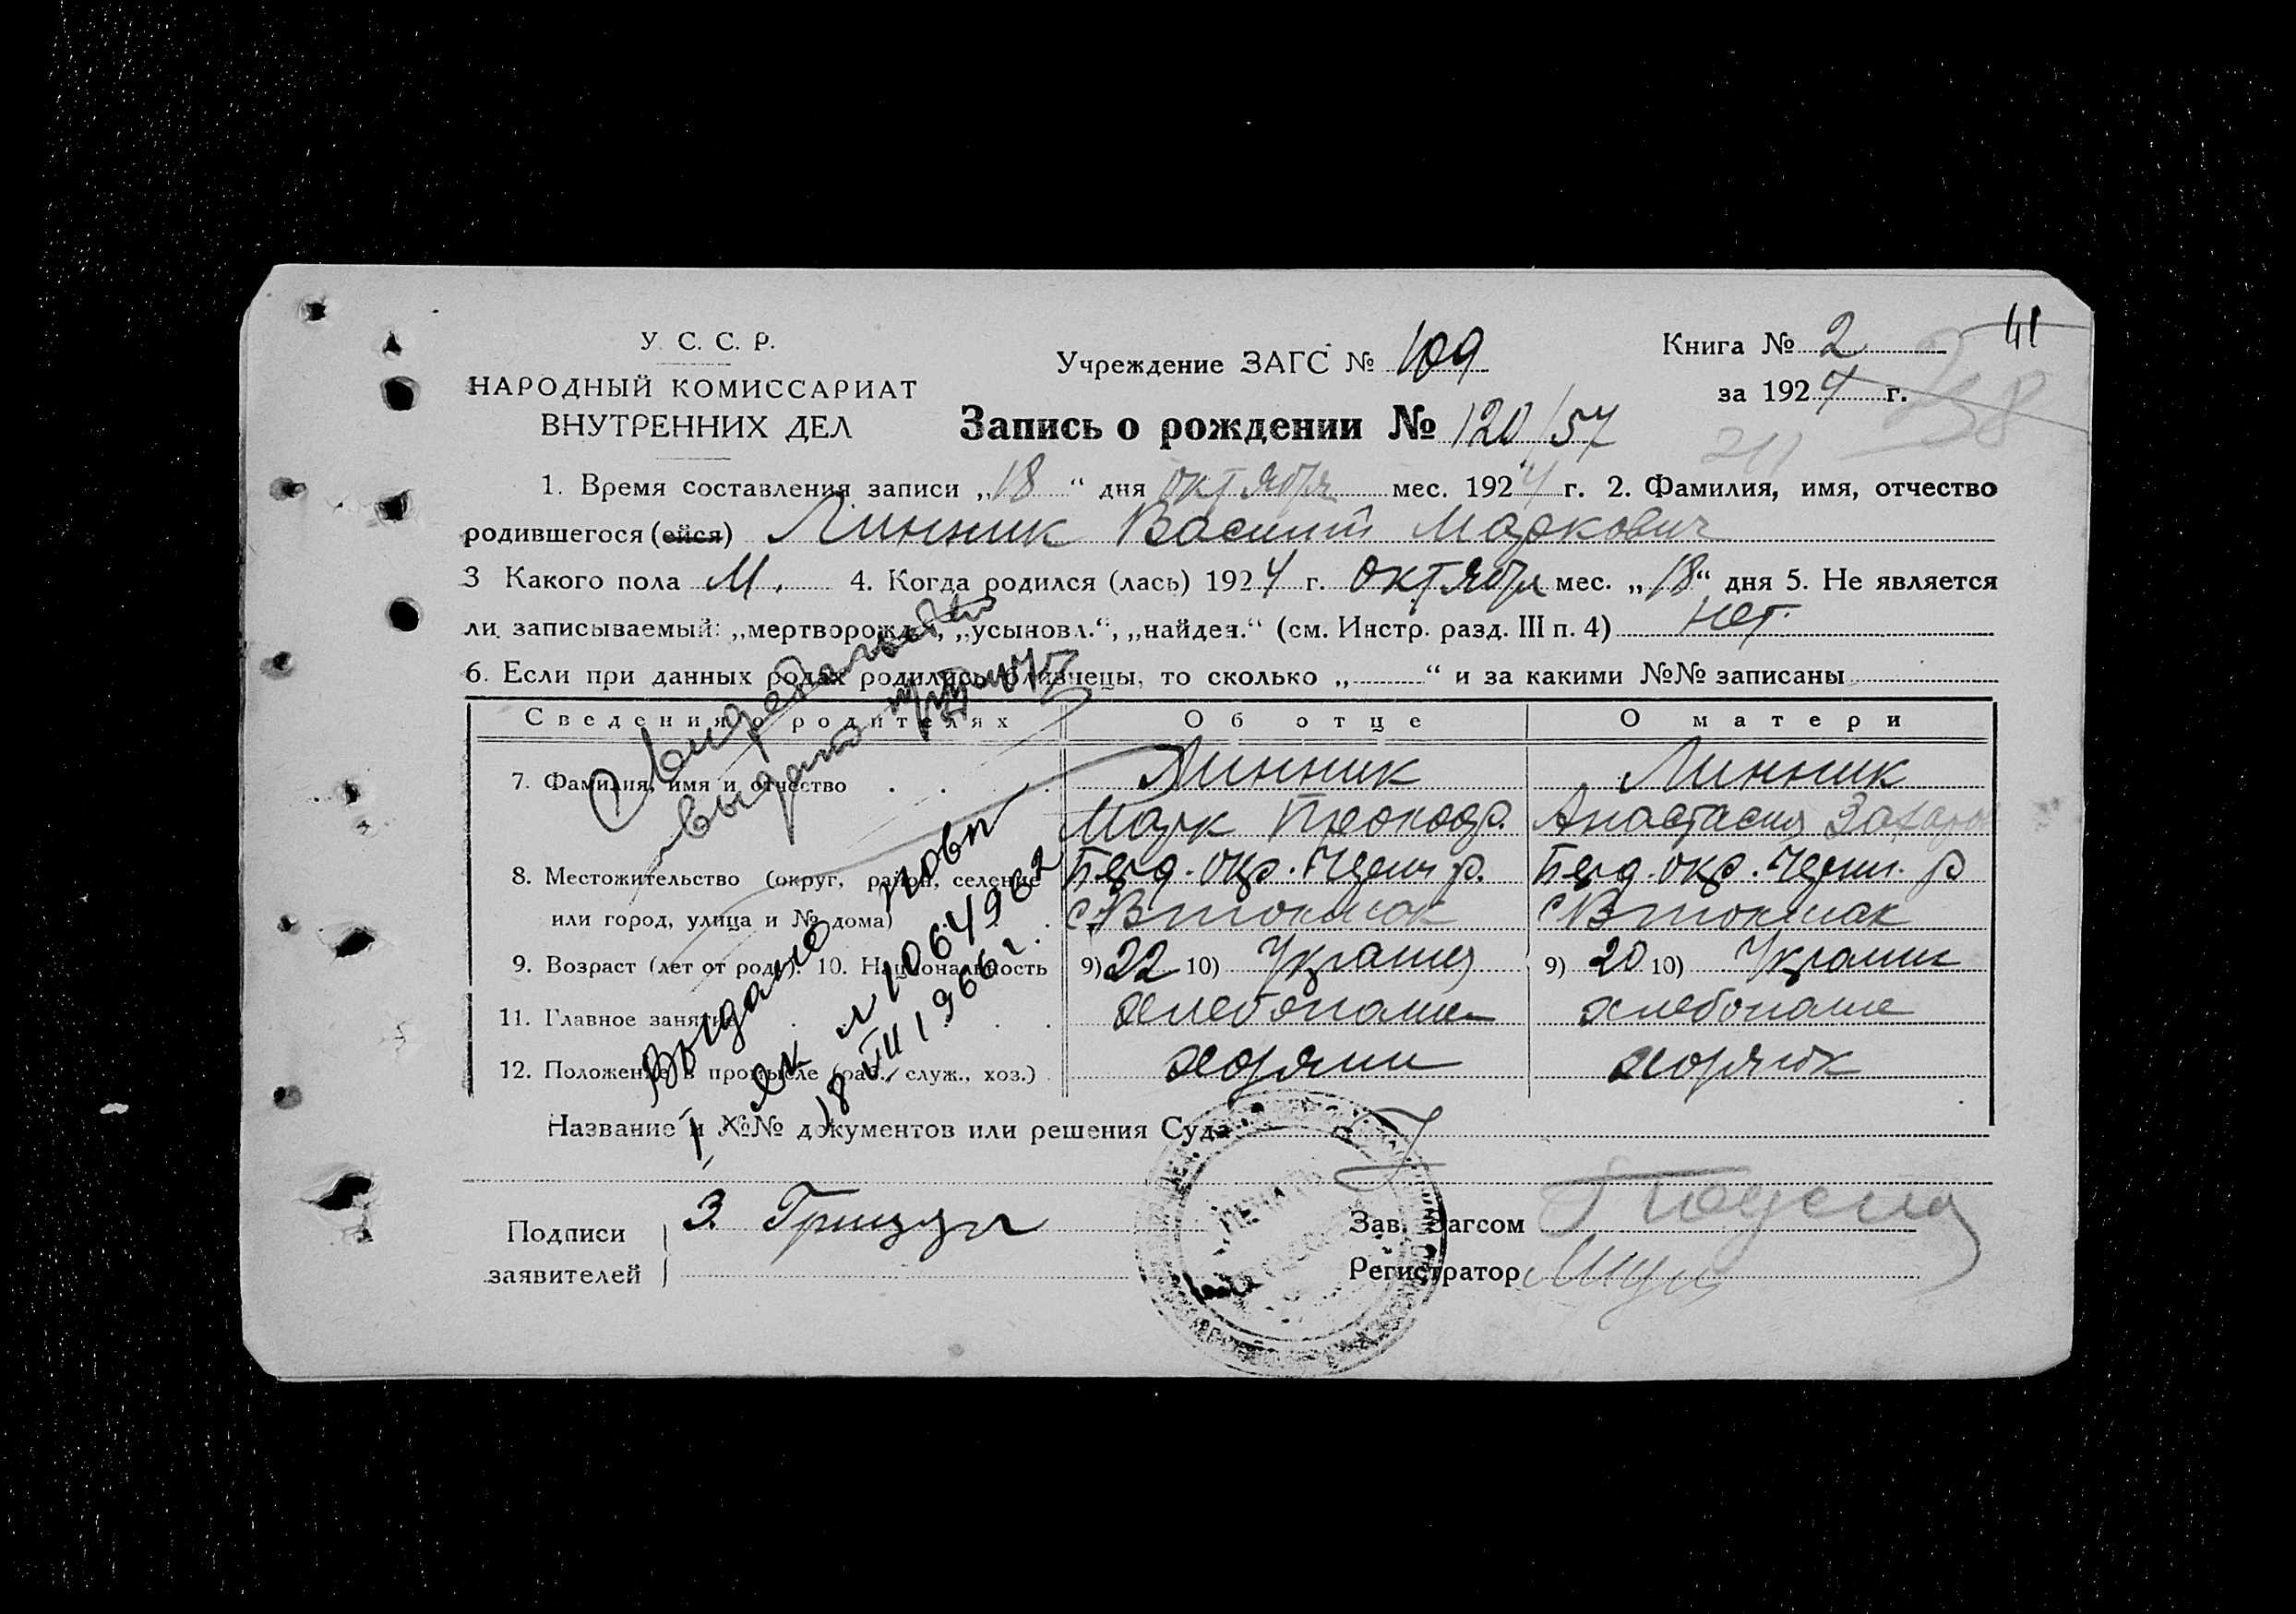 У. С. С. Р.
НАРОДНЫЙ КОМИССАРИАТ
ВНУТРЕННИХ ДЕЛ
Учреждение ЗАГС № 109
Книга № 2
41
за 1924 г.
Запись о рождении № 120/57
1. Время составления записи „18“ дня октября мес. 1924 г. 2. Фамилия, имя, отчество
родившегося (ейся) Линник Василий Маркович
3 Какого пола М. 4. Когда родился (лась) 1924 г. октября мес. „18“ дня 5. Не является
ли записываемый: „мертворожд.“, „усыновл.“, „найден.“ (см. Инстр. разд. III п. 4) нет.
6. Если при данных родах родились близнецы, то сколько „ “ и за какими №№ записаны
Сведения о родителях Об отце О матери
7. Фамилия, имя и отчество Линник Линник
Марк Анастасия
8. Местожительство (округ, район, селение Берд. окр. Черн. р. Берд. окр. Черн. р
или город, улица и № дома) с В Токмак с В Токмак
9. Возраст (лет от роду). 10. Национальность 9) 22 10) 9) 20 10)
11. Главное занятие
12. Положение в промысле (раб., служ., хоз.)
Название и №№ документов или решения Суда
Подписи
заявителей
З. Грицун
Зав. Загсом
Регистратор
выдано
повт
1064962
18 VIII 1966 г.